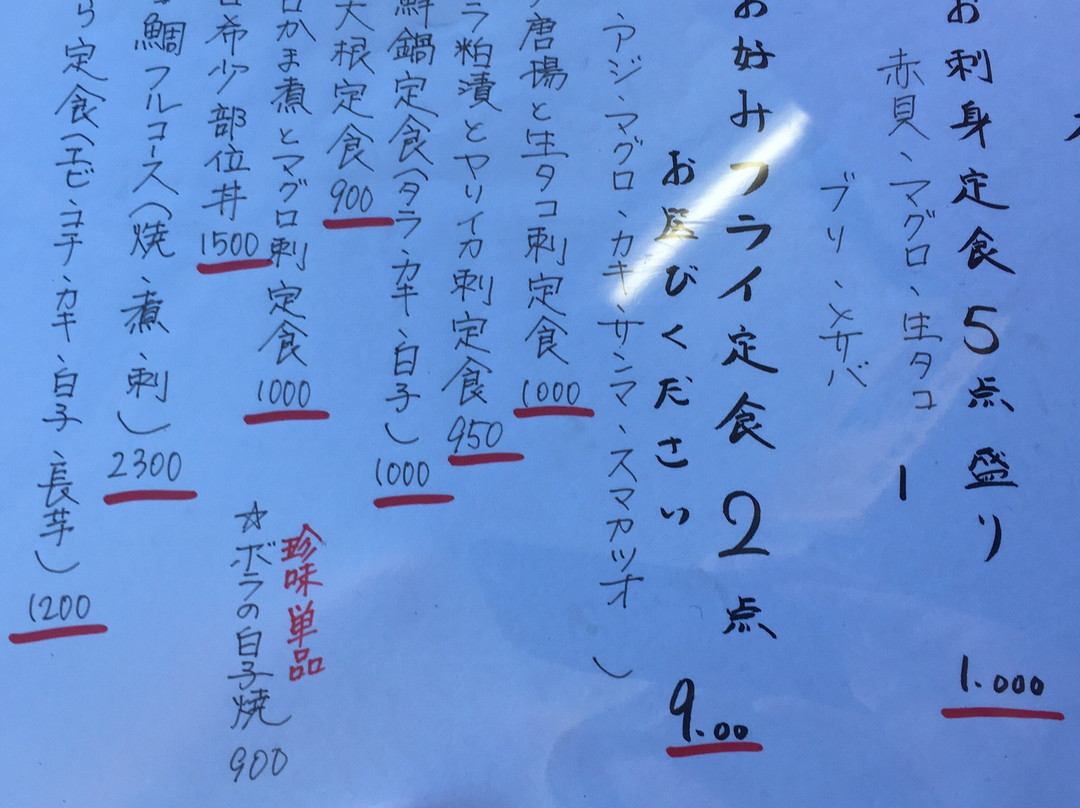 お刺身定食5点盛り
1.000
赤貝、マグロ、生タコ
ブリ、〆サバ
お好みフライ定食 2点
9.00
お選びください
アジ、マグロ、カキ、サンマ、スマカツオ)
唐揚と生タコ刺定食 1000
ラ粕漬とヤリイカ刺定食 950
鮮鍋定食(タラ、カキ、白子) 1000
大根定食 900
かま煮とマグロ刺定食 1000
希少部位丼 1500
鯛フルコース(焼、煮、刺) 2300
ら定食(エビ、コチ、カキ、白子、長芋) 1200
珍味単品
☆ボラの白子焼 900